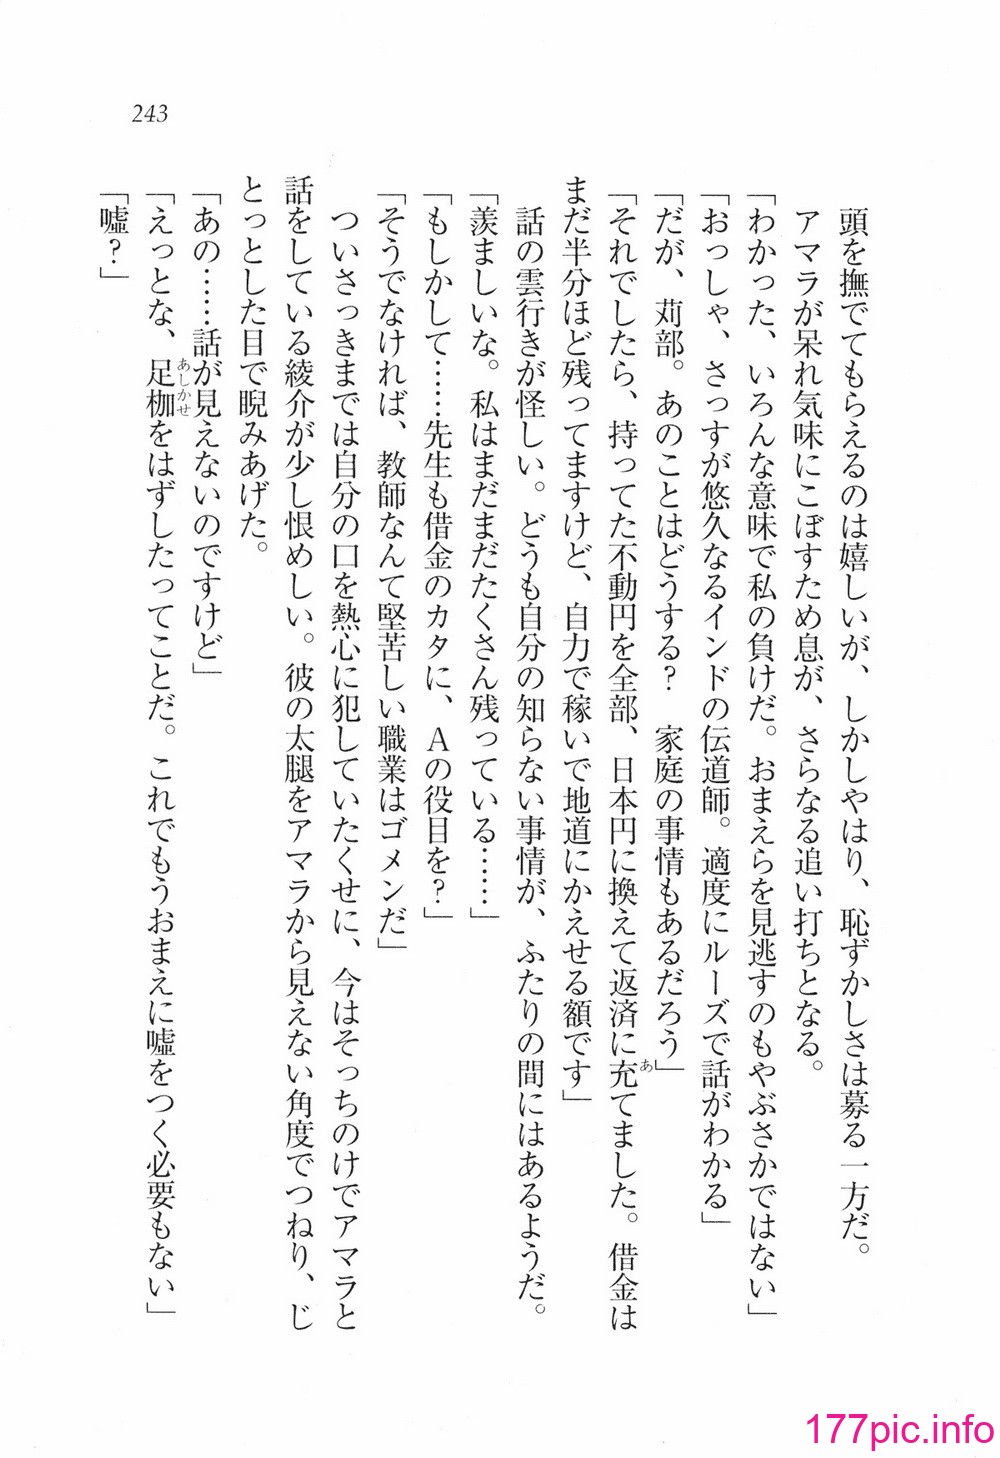 243
頭を撫でてもらえるのは嬉しいが、しかしやはり、恥ずかしさは募る一方だ。
アマラが呆れ気味にこぼすため息が、さらなる追い打ちとなる。
「わかった、いろんな意味で私の負けだ。おまえらを見逃すのもやぶさかではない」
「おっしゃ、さっすが悠久なるインドの伝道師。適度にルーズで話がわかる」
「だが、苅部。あのことはどうする？　家庭の事情もあるだろう」
「それでしたら、持ってた不動円を全部、日本円に換えて返済に充てました。借金は
あ
まだ半分ほど残ってますけど、自力で稼いで地道にかえせる額です」
話の雲行きが怪しい。どうも自分の知らない事情が、ふたりの間にはあるようだ。
「羨ましいな。私はまだまだたくさん残っている……」
「もしかして……先生も借金のカタに、Ａの役目を？」
「そうでなければ、教師なんて堅苦しい職業はゴメンだ」
ついさっきまでは自分の口を熱心に犯していたくせに、今はそっちのけでアマラと
話をしている綾介が少し恨めしい。彼の太腿をアマラから見えない角度でつねり、じ
とっとした目で睨みあげた。
「あの……話が見えないのですけど」
「えっとな、足枷をはずしたってことだ。これでもうおまえに嘘をつく必要もない」
あしかせ
「嘘？」
177pic.info